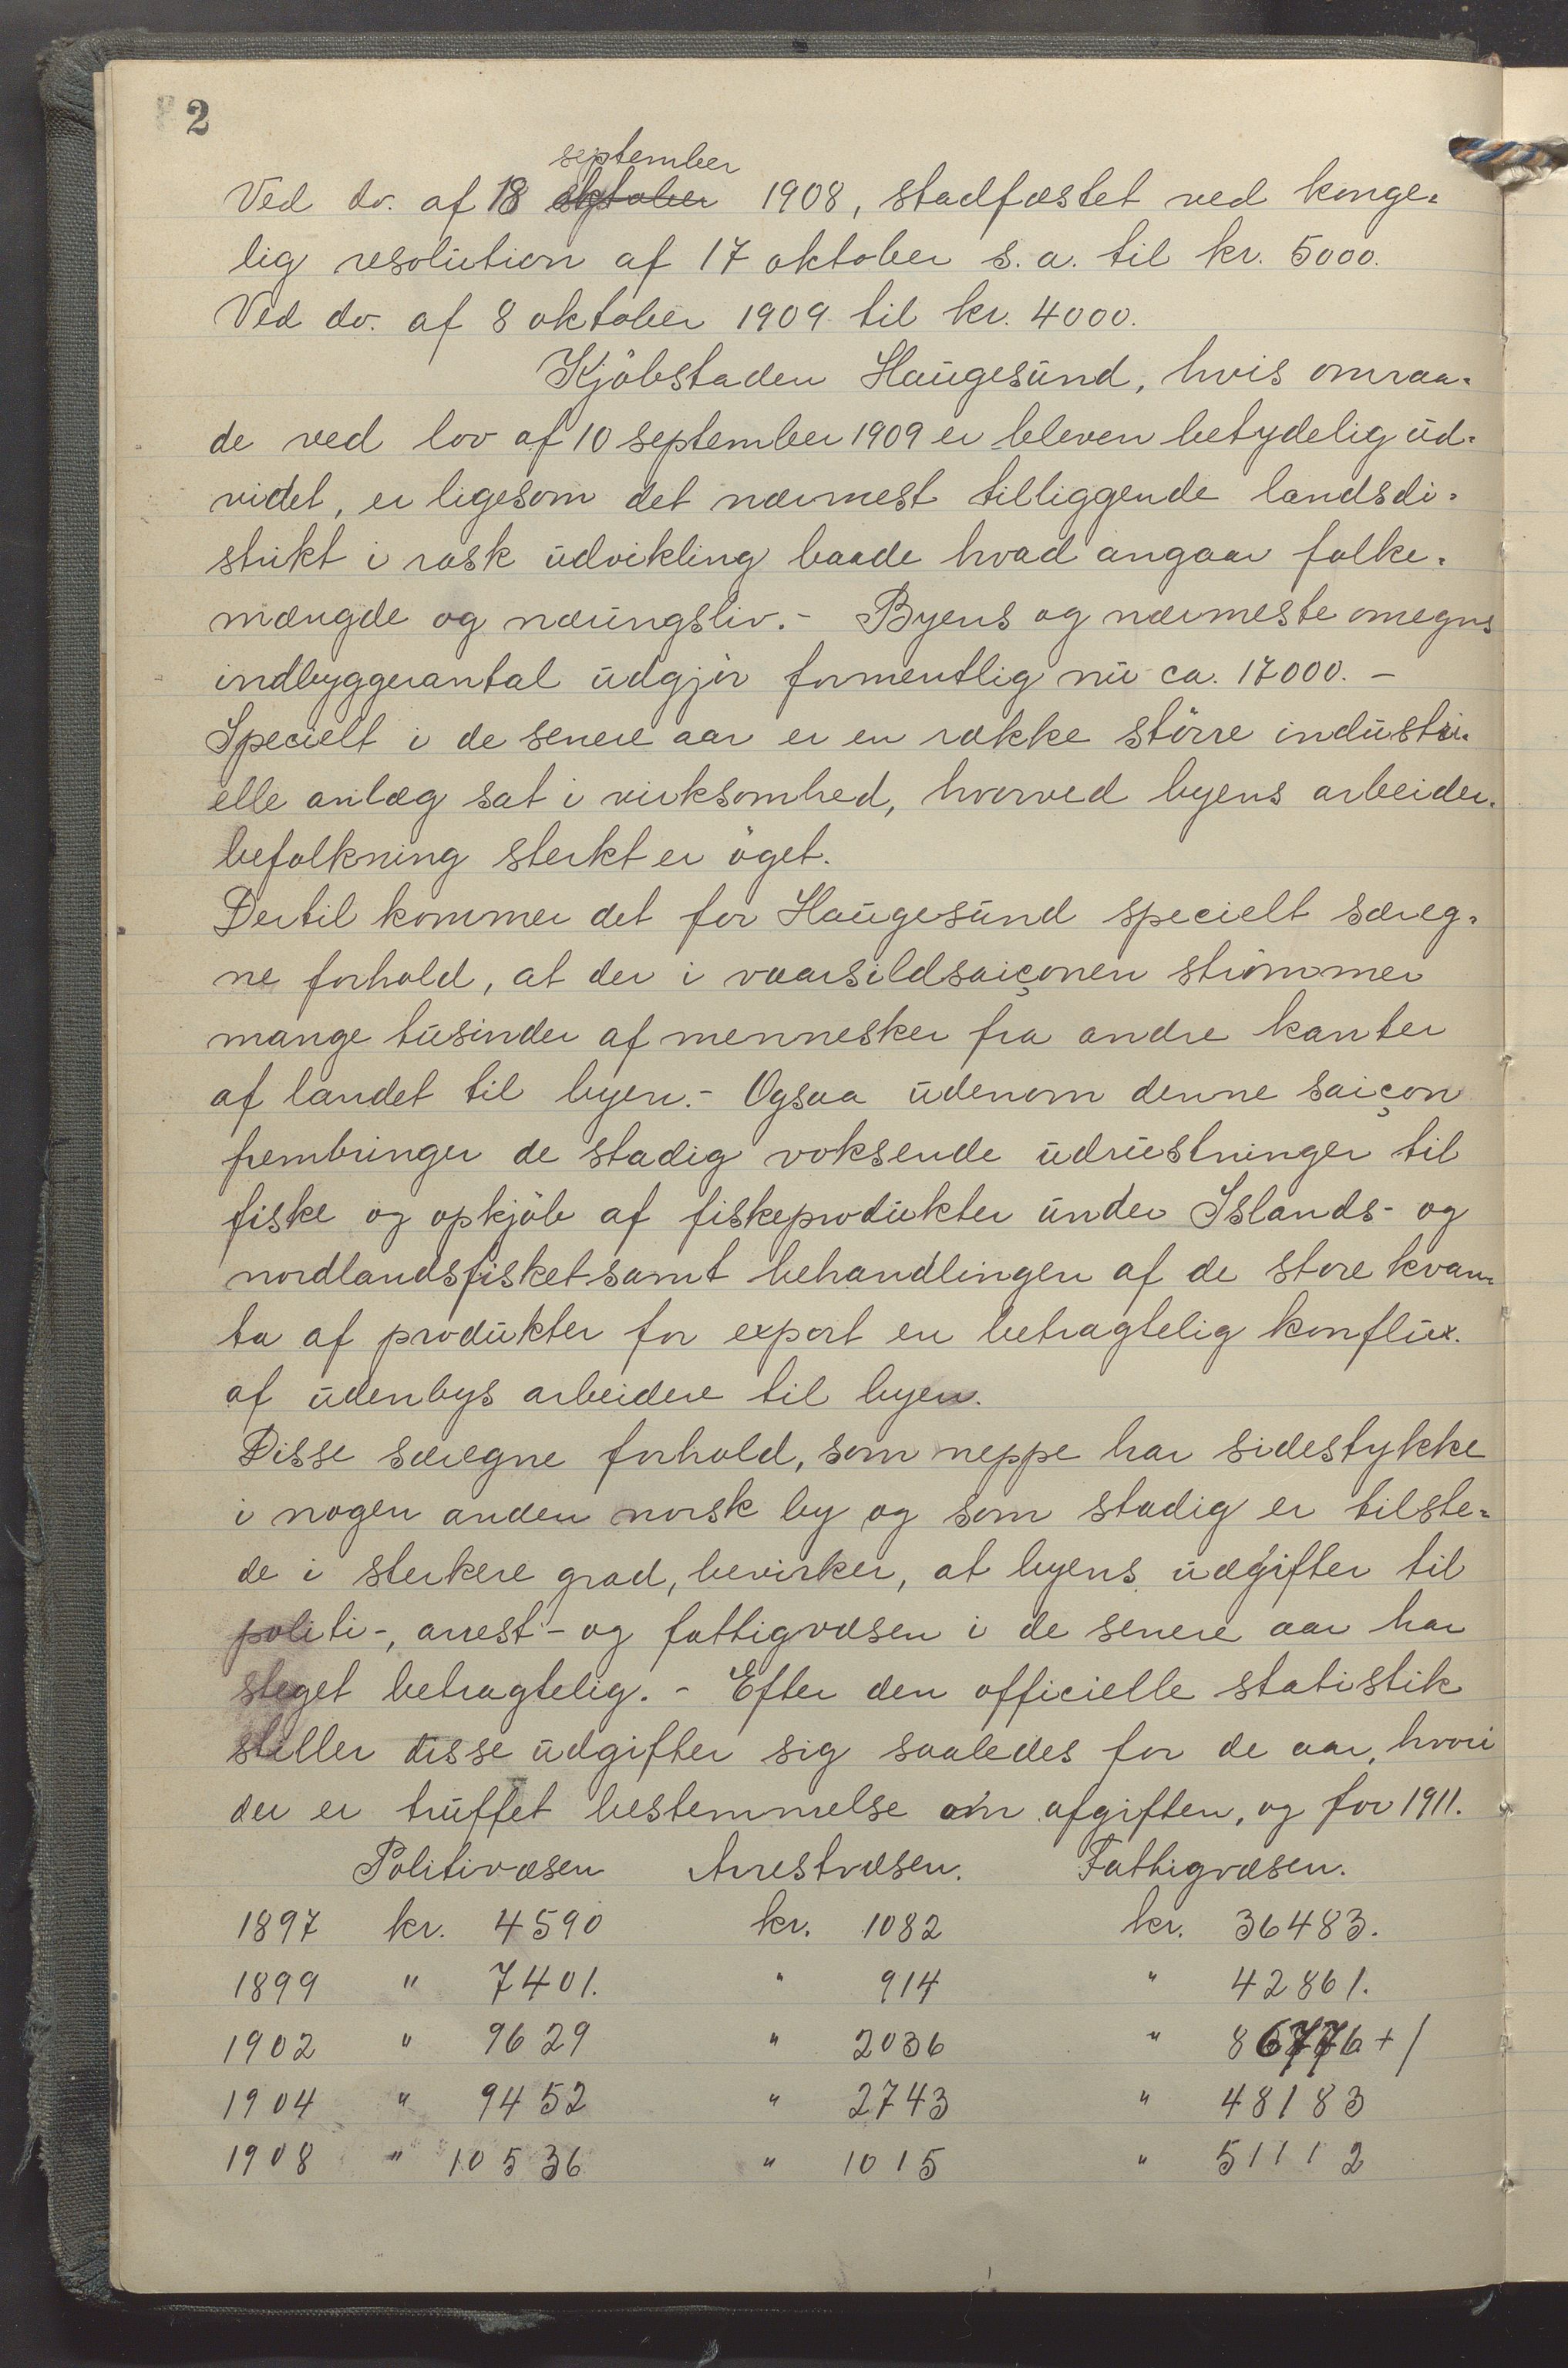 2
september
Ved do. af 18 oktober 1908, stadfæstet ved konge-
lig resolution af 17 oktober s. a. til kr. 5000.
Ved do. af 8 oktober 1909 til kr. 4000.
Kjöbstaden Haugesund, hvis omraa-
de ved lov af 10 september 1909 er bleven betydelig ud-
videt, er ligesom det nærmest tilliggende landsdi-
strikt i rask udvikling baade hvad angaar folke-
mængde og næringsliv. - Byens og nærmeste omegns
indbyggerantal udgjör formentlig nu ca. 17000. -
Specielt i de senere aar er en række större industri-
elle anlæg sat i virksomhed, hvorved byens arbeider-
befolkning sterkt er öget.
Dertil kommer det for Haugesund specielt særeg-
ne forhold, at der i vaarsildsaiçonen strömmer
mange tusinder af mennesker fra andre kanter
af landet til byen. - Ogsaa udenom denne saiçon
frembringer de stadig voksende udrustninger til
fiske og opkjöb af fiskeprodukter under Islands- og
nordlandsfisket samt behandlingen af de store kvan-
ta af produkter for export en betragtelig konflux
af udenbys arbeidere til byen.
Disse særegne forhold, som neppe har sidestykke
i nogen anden norsk by og som stadig er tilste-
de i sterkere grad, bevirker, at byens udgifter til
politi-, arrest- og fattigvæsen i de senere aar har
steget betragtelig. - Efter den officielle statistik
stiller disse udgifter sig saaledes for de aar, hvori
der er truffet bestemmelse om afgiften, og for 1911.
Politivæsen Arrestvæsen. Fattigvæsen.
1897 kr. 4590 kr. 1082 kr. 36483.
1899 " 7401. " 914 " 42861.
1902 " 9629 " 2036 " 86776 +/
1904 " 9452 " 2743 " 48183
1908 " 10536 " 1015 " 51112